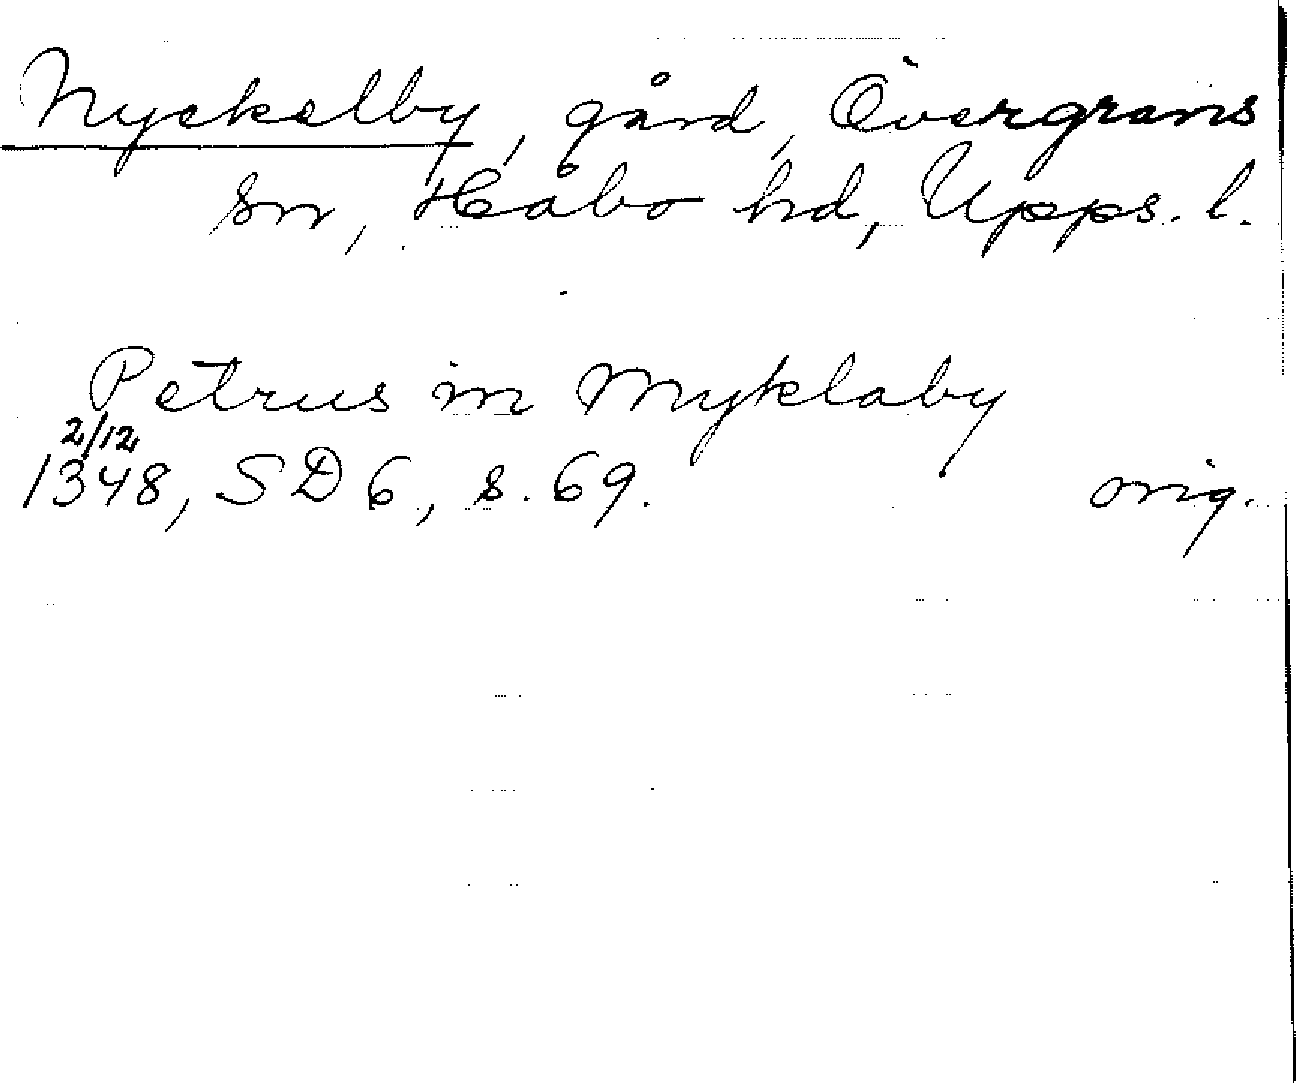 Nyckelby, gård, Övergrans
sn, Håbo hd, Upps. l.
Petrus in Myklaby
2/12
1348, SD 6, s. 69. orig.